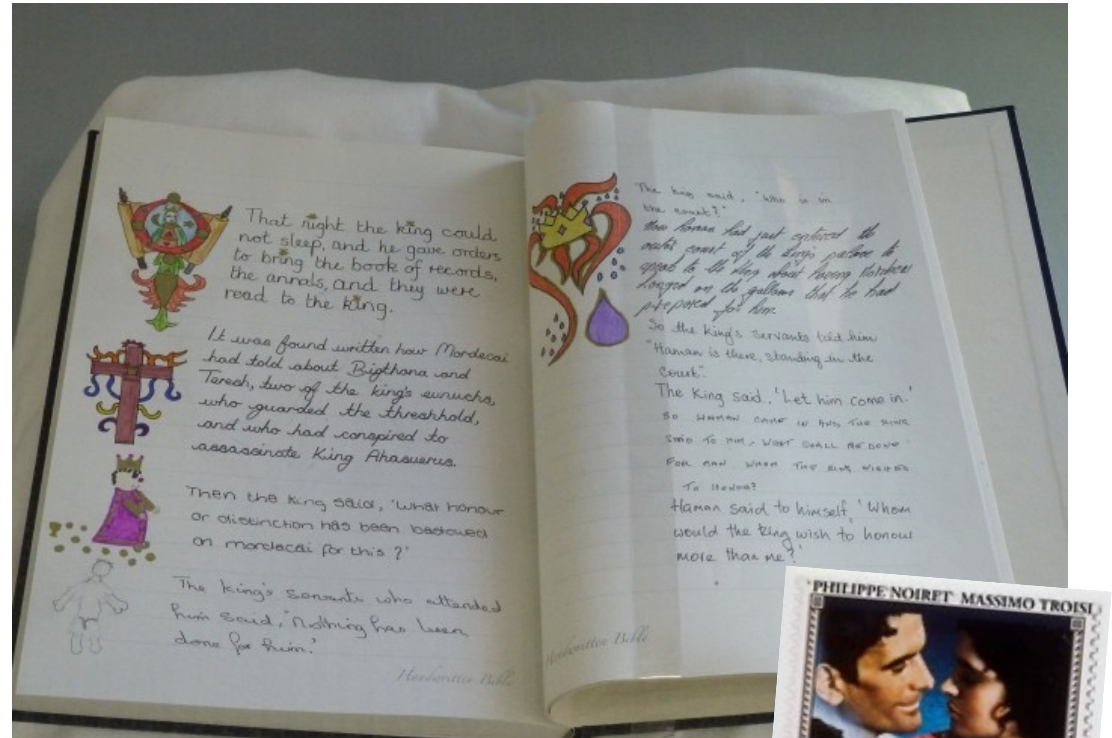 That night the king could
not sleep, and he gave orders
to bring the book of records,
the annals, and they were
read to the king.
It was found written how Mordecai
had told about Bigthana and
Teresh, two of the king's eunuchs,
who guarded the threshhold,
and who had conspired to
assassinate King Ahasuerus.
Then the King said, 'what honour
or distinction has been bestowed
on mordecai for this?'
The king's servants who attended
him said, "Nothing has been
done for him.'
Handwritten Bible
The king said, 'Who is in
the court?'
Now Haman had just entered the
outer court of the king's palace to
speak to the king about having Mordecai
hanged on the gallows that he had
prepared for him.
So the king's servants told him
"Haman is there, standing in the
Court".
The King said, 'Let him come in.'
SO HAMAN CAME IN AND THE KING
SAID TO HIM, WHAT SHALL BE DONE
FOR MAN WHOM THE KING WISHES
TO HONOR?
Haman said to himself, 'Whom
would the king wish to honour
more than me?'
Handwritten Bible
PHILIPPE NOIRET MASSIMO TROISI